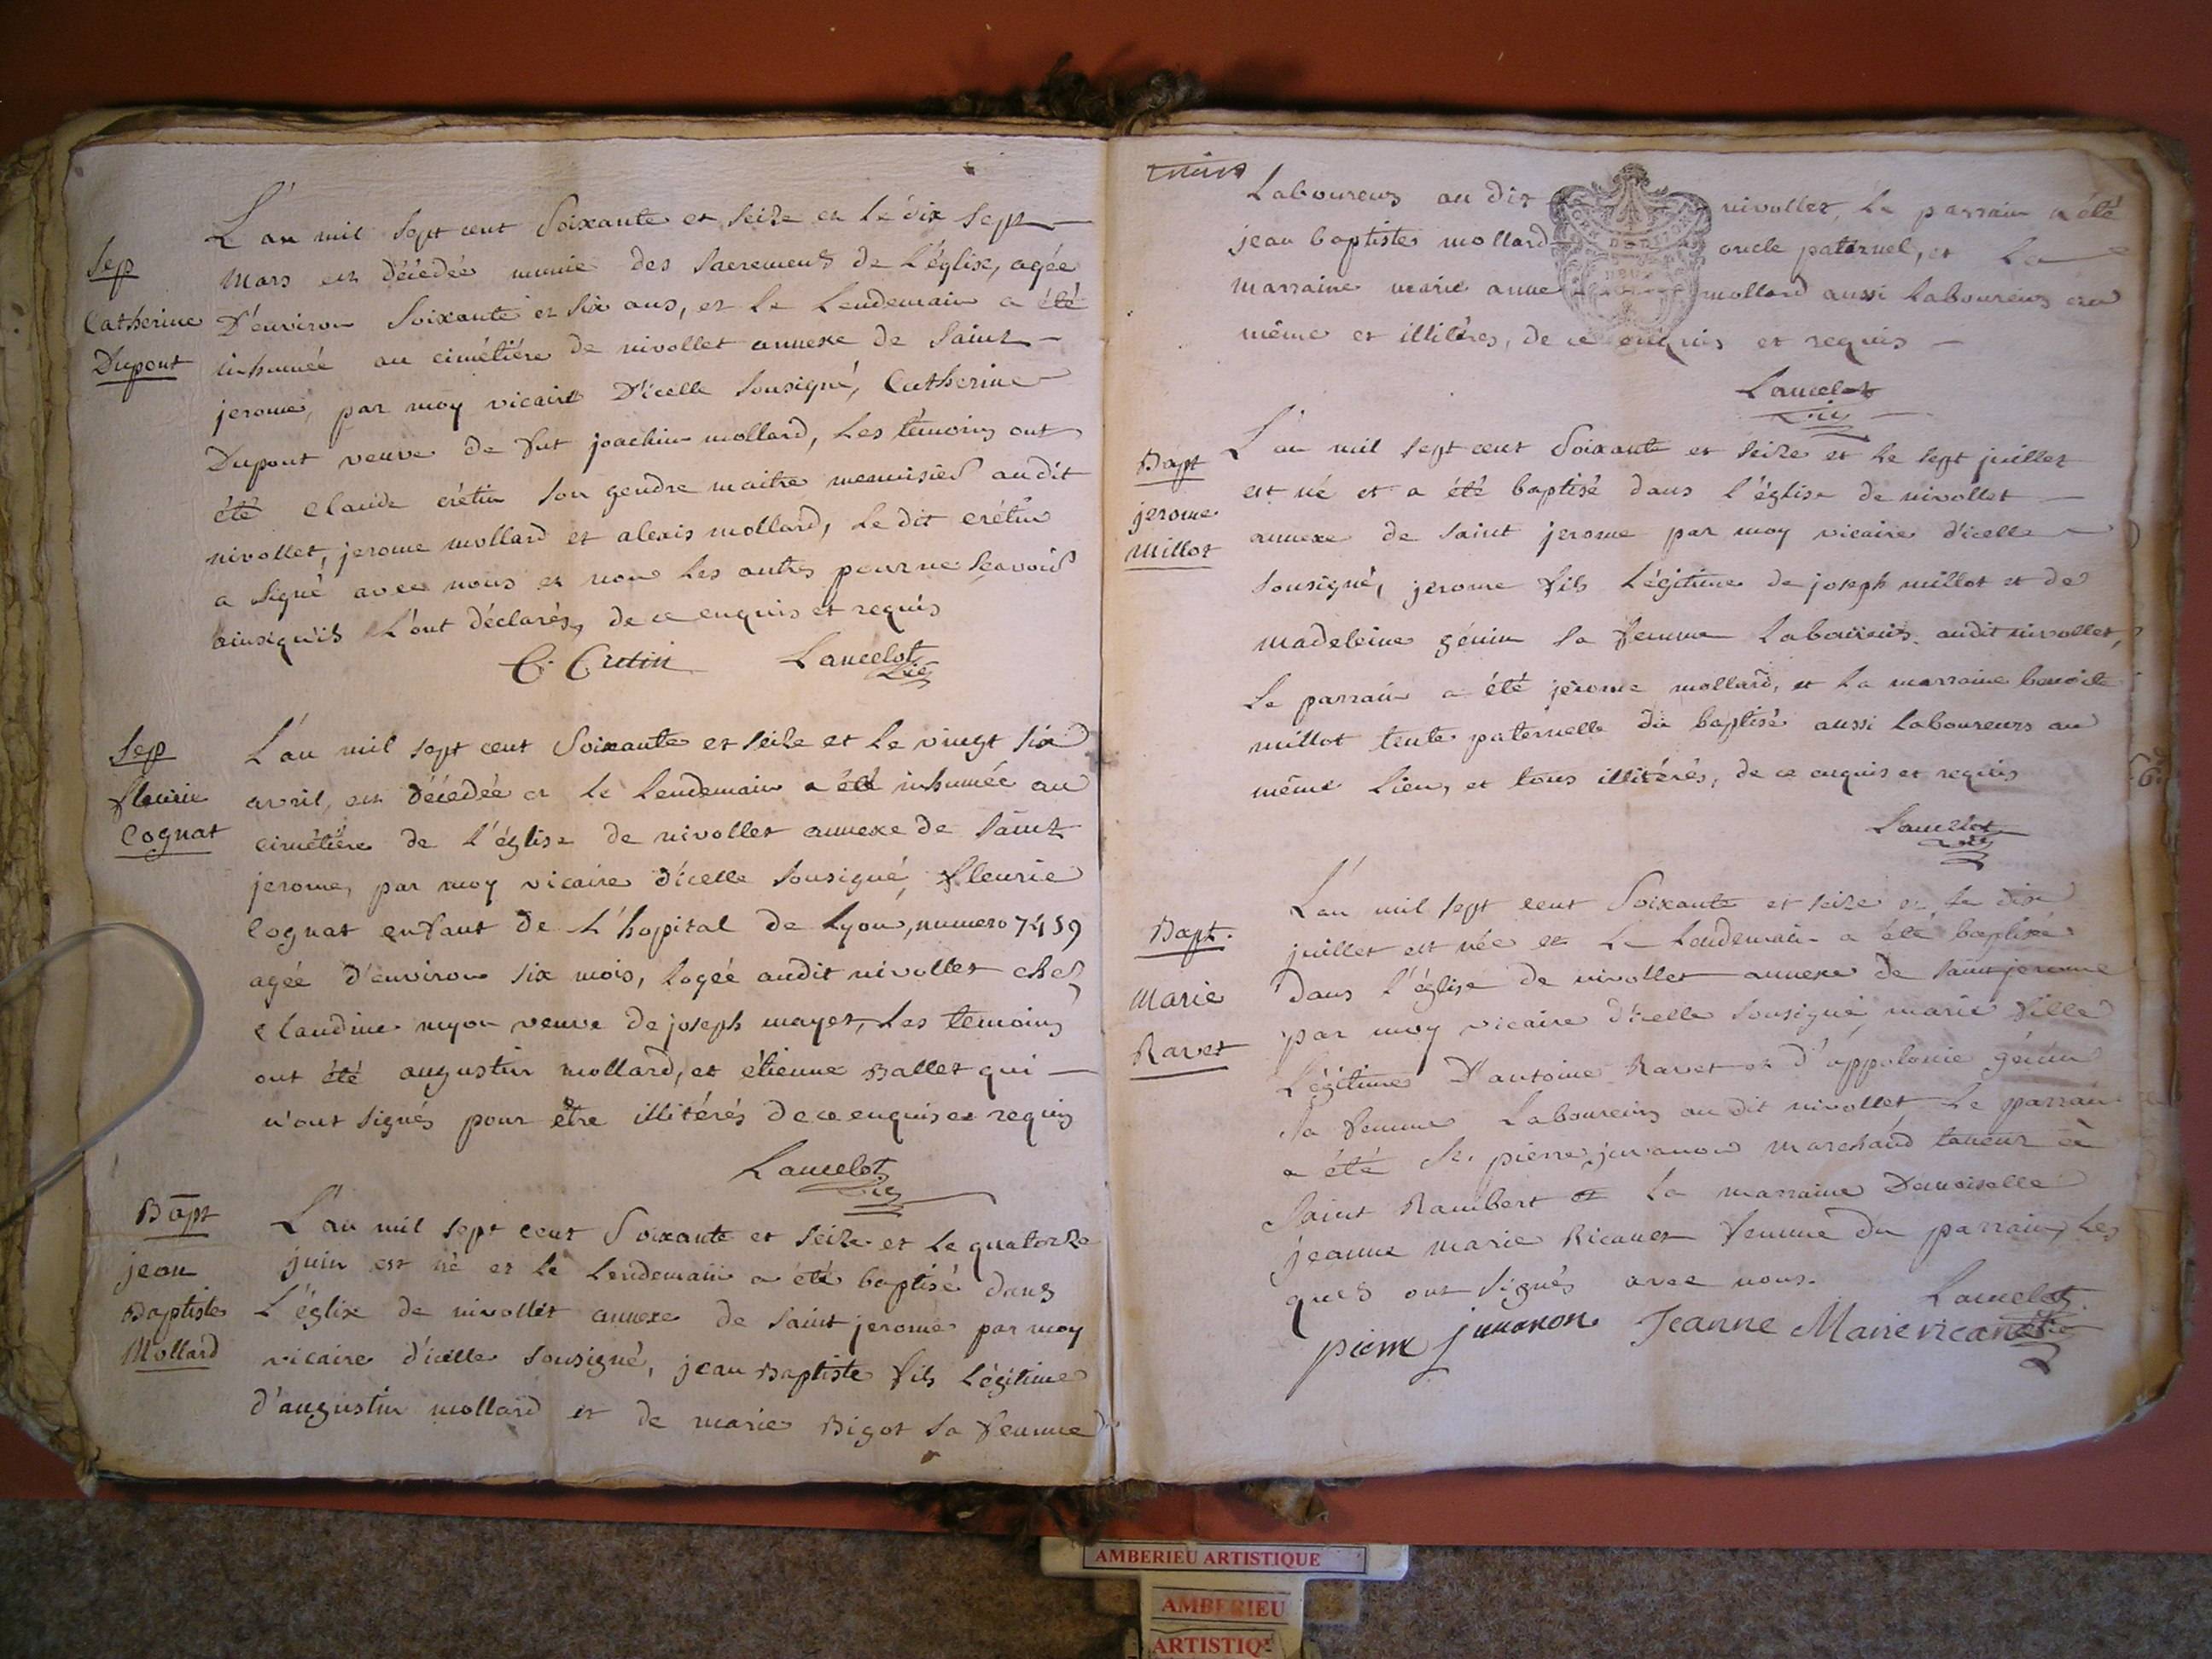 Sep
Catherine
Dupont
L'an mil sept cent Soixante et seize et le dix sept
mars est décedée munie des sacremens de l'église, agée
D'environ soixante et six ans, et le lendemain a été
inhumée au cimétiére de nivollet annexe de saint
jerome, par moy vicaire D'icelle sousigné, Catherine
Dupont veuve de fut joachim mollard, les temoins ont
été claude crétin son gendre maitre menuisier audit
nivollet, jerome mollard et alexis mollard, le dit crétin
a signé avec nous et non les autres pour ne sçavoir
ainsiqu'ils l'ont déclarés, de ce enquis et requis
C. Cretin Lancelot
vic
Sep
fleurie
Cognat
L'an mil sept cent Soixante et seize et le vingt six
avril, est décedée et le lendemain a été inhumée au
cimétiére de l'église de nivollet annexe de saint
jerome, par moy vicaire d'icelle sousigné, fleurie
Cognat enfant de l'hopital de Lyon, numero 7459
agée d'environ six mois, logée audit nivollet chez
claudine myon veuve de joseph mayet, les temoins
ont été augustin mollard, et étienne Ballet qui
n'ont signés pour être illitérés de ce enquis et requis
Lancelot
vic
Bapt
jean
Baptiste
Mollard
L'an mil sept cent Soixante et seize et le quatorze
juin est né et le lendemain a été baptisé dans
L'église de nivollet annexe de saint jerome par moy
vicaire d'icelle sousigné, jean Baptiste fils légitime
d'augustin mollard et de marie Bigot sa femme
Laboureurs au dit nivollet, le parrain a été
jean baptiste mollard oncle paternel, et la
marraine marie anne mollard aussi laboureurs au
même et illitéres, de ce enquis et requis
Lancelot
vic
Bapt
jerome
Millot
L'an mil sept cent Soixante et seize et le sept juillet
est né et a été baptisé dans l'église de nivollet
annexe de saint jerome par moy vicaire d'icelle
sousigné, jerome fils légitime de joseph millot et de
madeleine génin sa femme laboureurs audit nivollet,
le parrain a été jérome mollard, et la marraine benoite
millot tente paternelle du baptisé aussi laboureurs au
même lieu, et tous illitérés, de ce enquis et requis
Lancelot
vic
Bapt.
Marie
Ravet
L'an mil sept cent Soixante et seize et le dix
juillet est née et le lendemain a été baptisée
dans l'église de nivollet annexe de saint jerome
par moy vicaire d'icelle sousigné marie fille
Légitime D'antoine Ravet et d'appolonie génin
sa femme Laboureurs au dit nivollet, le parrain
a été Sr. pierre juvanon marchand taneur à
Saint Rambert et la marraine Demoiselle
jeanne marie Ricanet femme du parrain, les
quels ont signés avec nous.
Lancelot
vic
pierre juvanon Jeanne Marie ricanet
AMBERIEU ARTISTIQUE
AMBERIEU
ARTISTIQUE